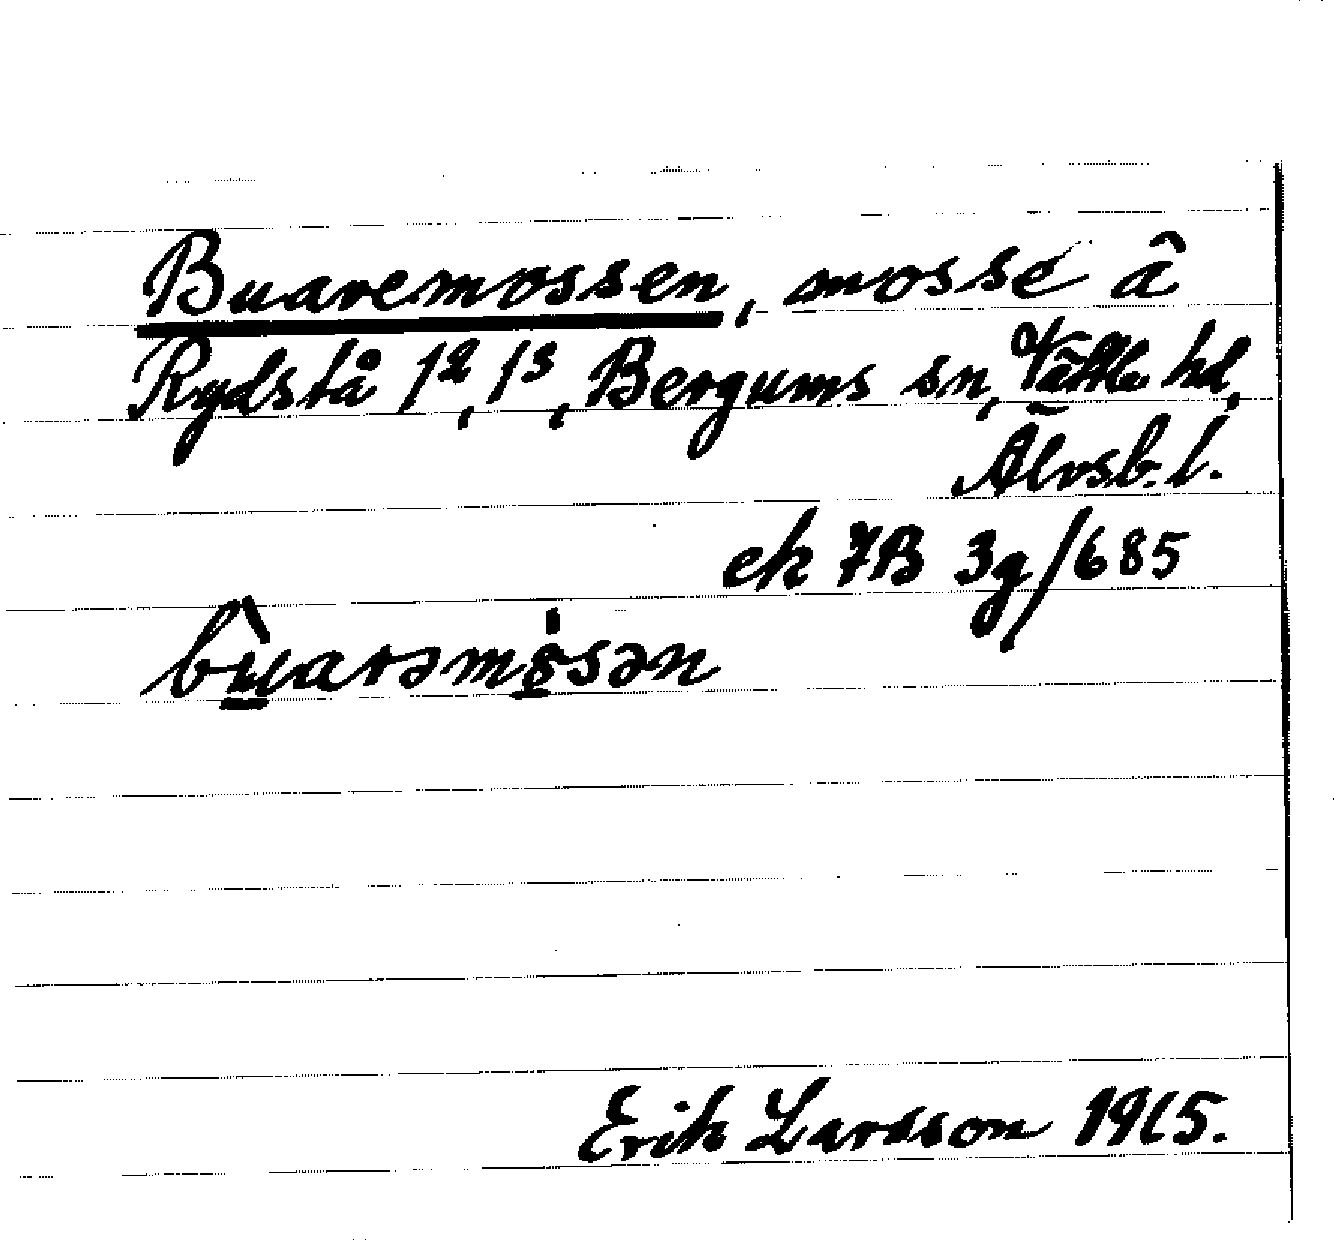 Buaremossen, mosse å
Rydstå 1², 1³, Bergums sn, Vättle hd,
Älvsb. l.
ek 7B 3g/685
bu̲arəmo̲sən
Erik Larsson 1965.